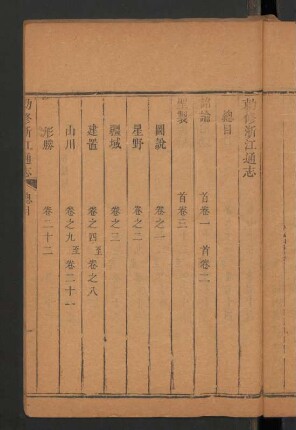 勅修浙江通志
總目
詔諭 首卷一 首卷二
聖製 首卷三
圖說 卷之一
星野 卷之二
疆域 卷之三
建置 卷之四至卷之八
山川 卷之九至卷二十一
形勝 卷二十二
勅修浙江通志 總目